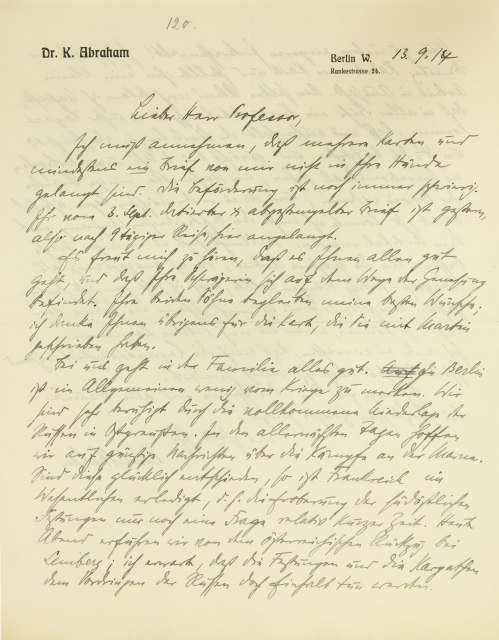 120.
Dr. K. Abraham
Berlin W. 13.9.14
Rankestrasse 24.
Lieber Herr Professor,
Ich muß annehmen, daß mehrere Karten und
mindestens ein Brief von mir nicht in Ihre Hände
gelangt sind. Die Beförderung ist noch immer schwierig.
Ihr vom 3. Sept. datierter & abgestempelter Brief ist gestern,
also nach 9 tägiger Reise, hier angelangt.
Es freut mich zu hören, daß es Ihnen allen gut
geht, und daß Ihre Schwägerin sich auf dem Wege der Genesung
befindet. Ihre beiden Söhne begleiten meine besten Wünsche;
ich danke Ihnen übrigens für die Karte, die Sie mit Martin
geschrieben haben.
Bei uns geht in der Familie alles gut. In Berlin
ist im Allgemeinen wenig vom Kriege zu merken. Wir
sind sehr beruhigt durch die vollkommene Niederlage der
Russen in Ostpreußen. In den allernächsten Tagen hoffen
wir auf günstige Nachrichten über die Kämpfe an der Marne.
Sind diese glücklich entschieden, so ist Frankreich im
Wesentlichen erledigt, d. h. die Eroberung der südöstlichen
Festungen nur noch eine Frage relativ kurzer Zeit. Heute
Abend erfuhren wir von dem österreichischen Rückzug bei
Lemberg; ich erwarte, daß die Festungen und die Karpathen
dem Vordringen der Russen doch Einhalt tun werden.